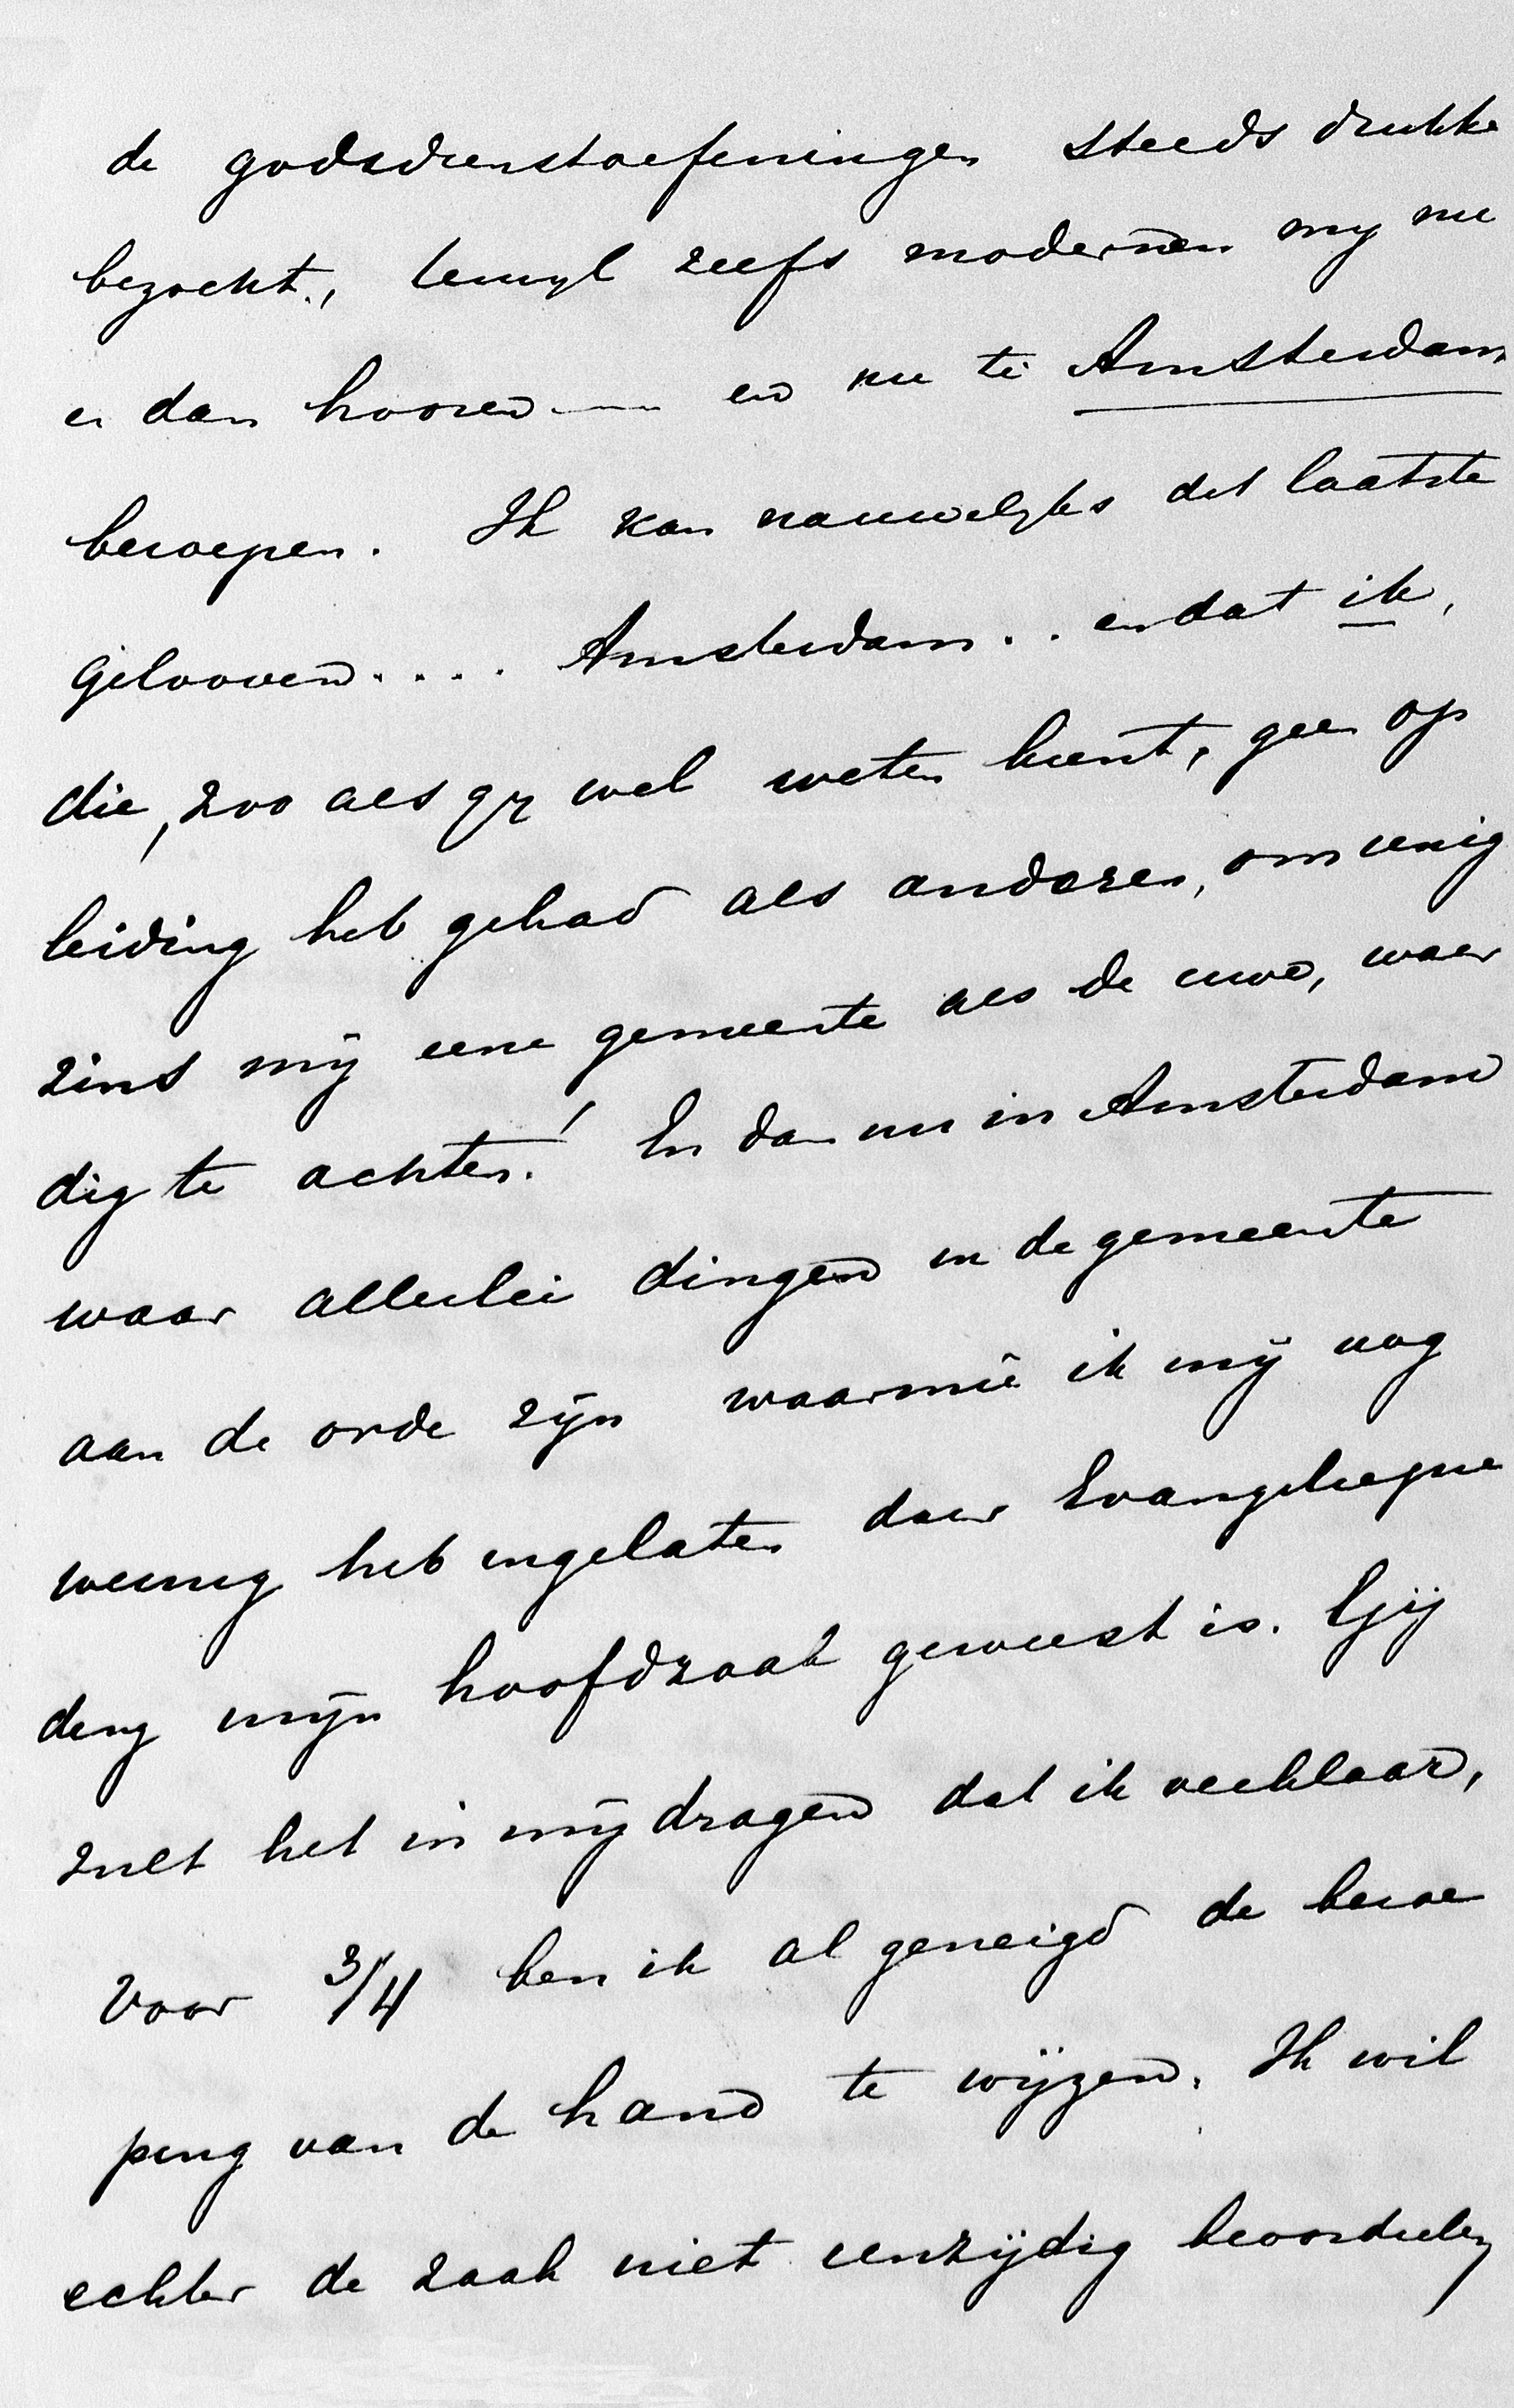 de godsdienstoefeningen steeds drukke
bezocht, terwyl zelfs modernen my nu
en dan hooren — en nu te Amsterdam
beroepen. Ik kan nauwelyks dat laatste
gelooven.... Amsterdam.. en dat ik,
die, zoo als gy wel weten kunt, geen op
leiding heb gehad als anderen, om eenig
zins mij eene gemeente als de uwe, waar
dig te achten! En dan nu in Amsterdam
waar allerlei dingen in de gemeente
aan de orde zijn waarmeê ik mij nog
weinig heb ingelaten daar Evangeliepre
deng mijn hoofdzaak geweest is. Gij
zult het in mij dragen dat ik verklaar,
voor 3/4 ben ik al geneigd de beroe
ping van de hand te wijzen. Ik wil
echter de zaak niet eenzijdig beoordeelen